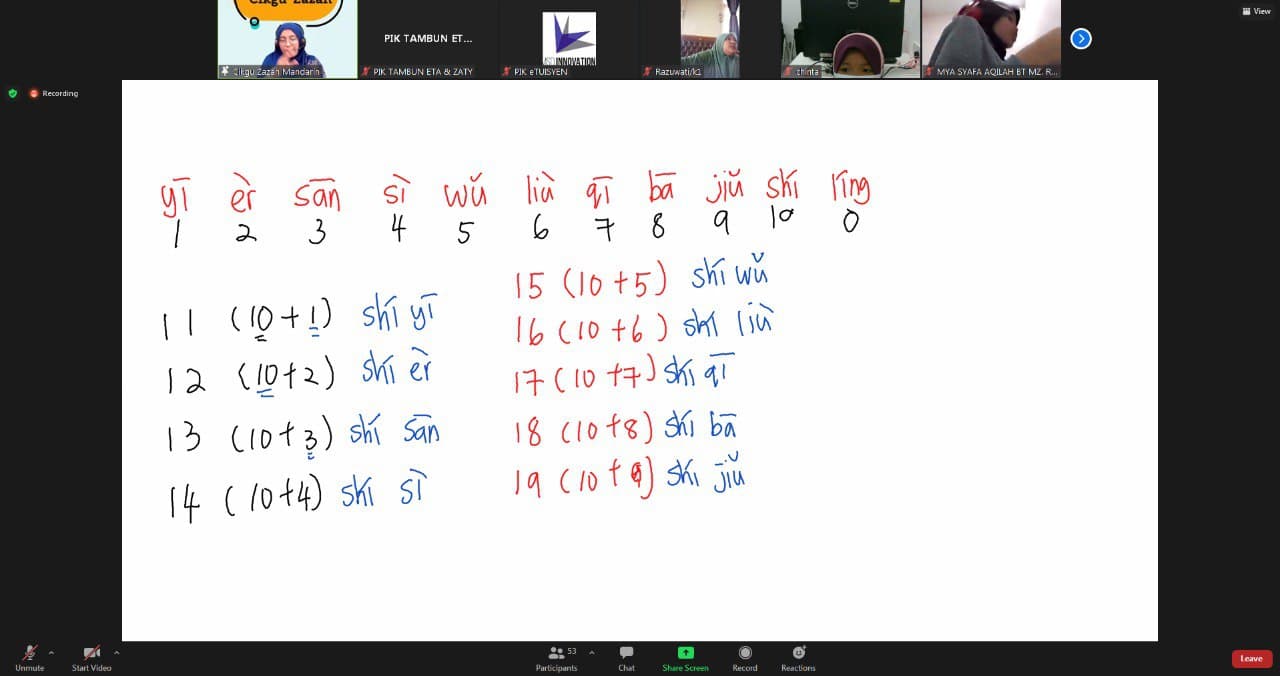 Cikgu Zazah
Cikgu Zazah Mandarin
PIK TAMBUN ET...
PIK TAMBUN ETA & ZATY
INNOVATION
PIK eTUISYEN
Razuwati/k1
DELL
chinta
MYA SYAFA AQILAH BT MZ. R...
View
Recording
yī èr sān sì wǔ liù qī bā jiǔ shí líng
1 2 3 4 5 6 7 8 9 10 0
11 (10+1) shí yī
12 (10+2) shí èr
13 (10+3) shí sān
14 (10+4) shí sì
15 (10+5) shí wǔ
16 (10+6) shí liù
17 (10+7) shí qī
18 (10+8) shí bā
19 (10+9) shí jiǔ
Unmute
Start Video
53
Participants
Chat
Share Screen
Record
Reactions
Leave